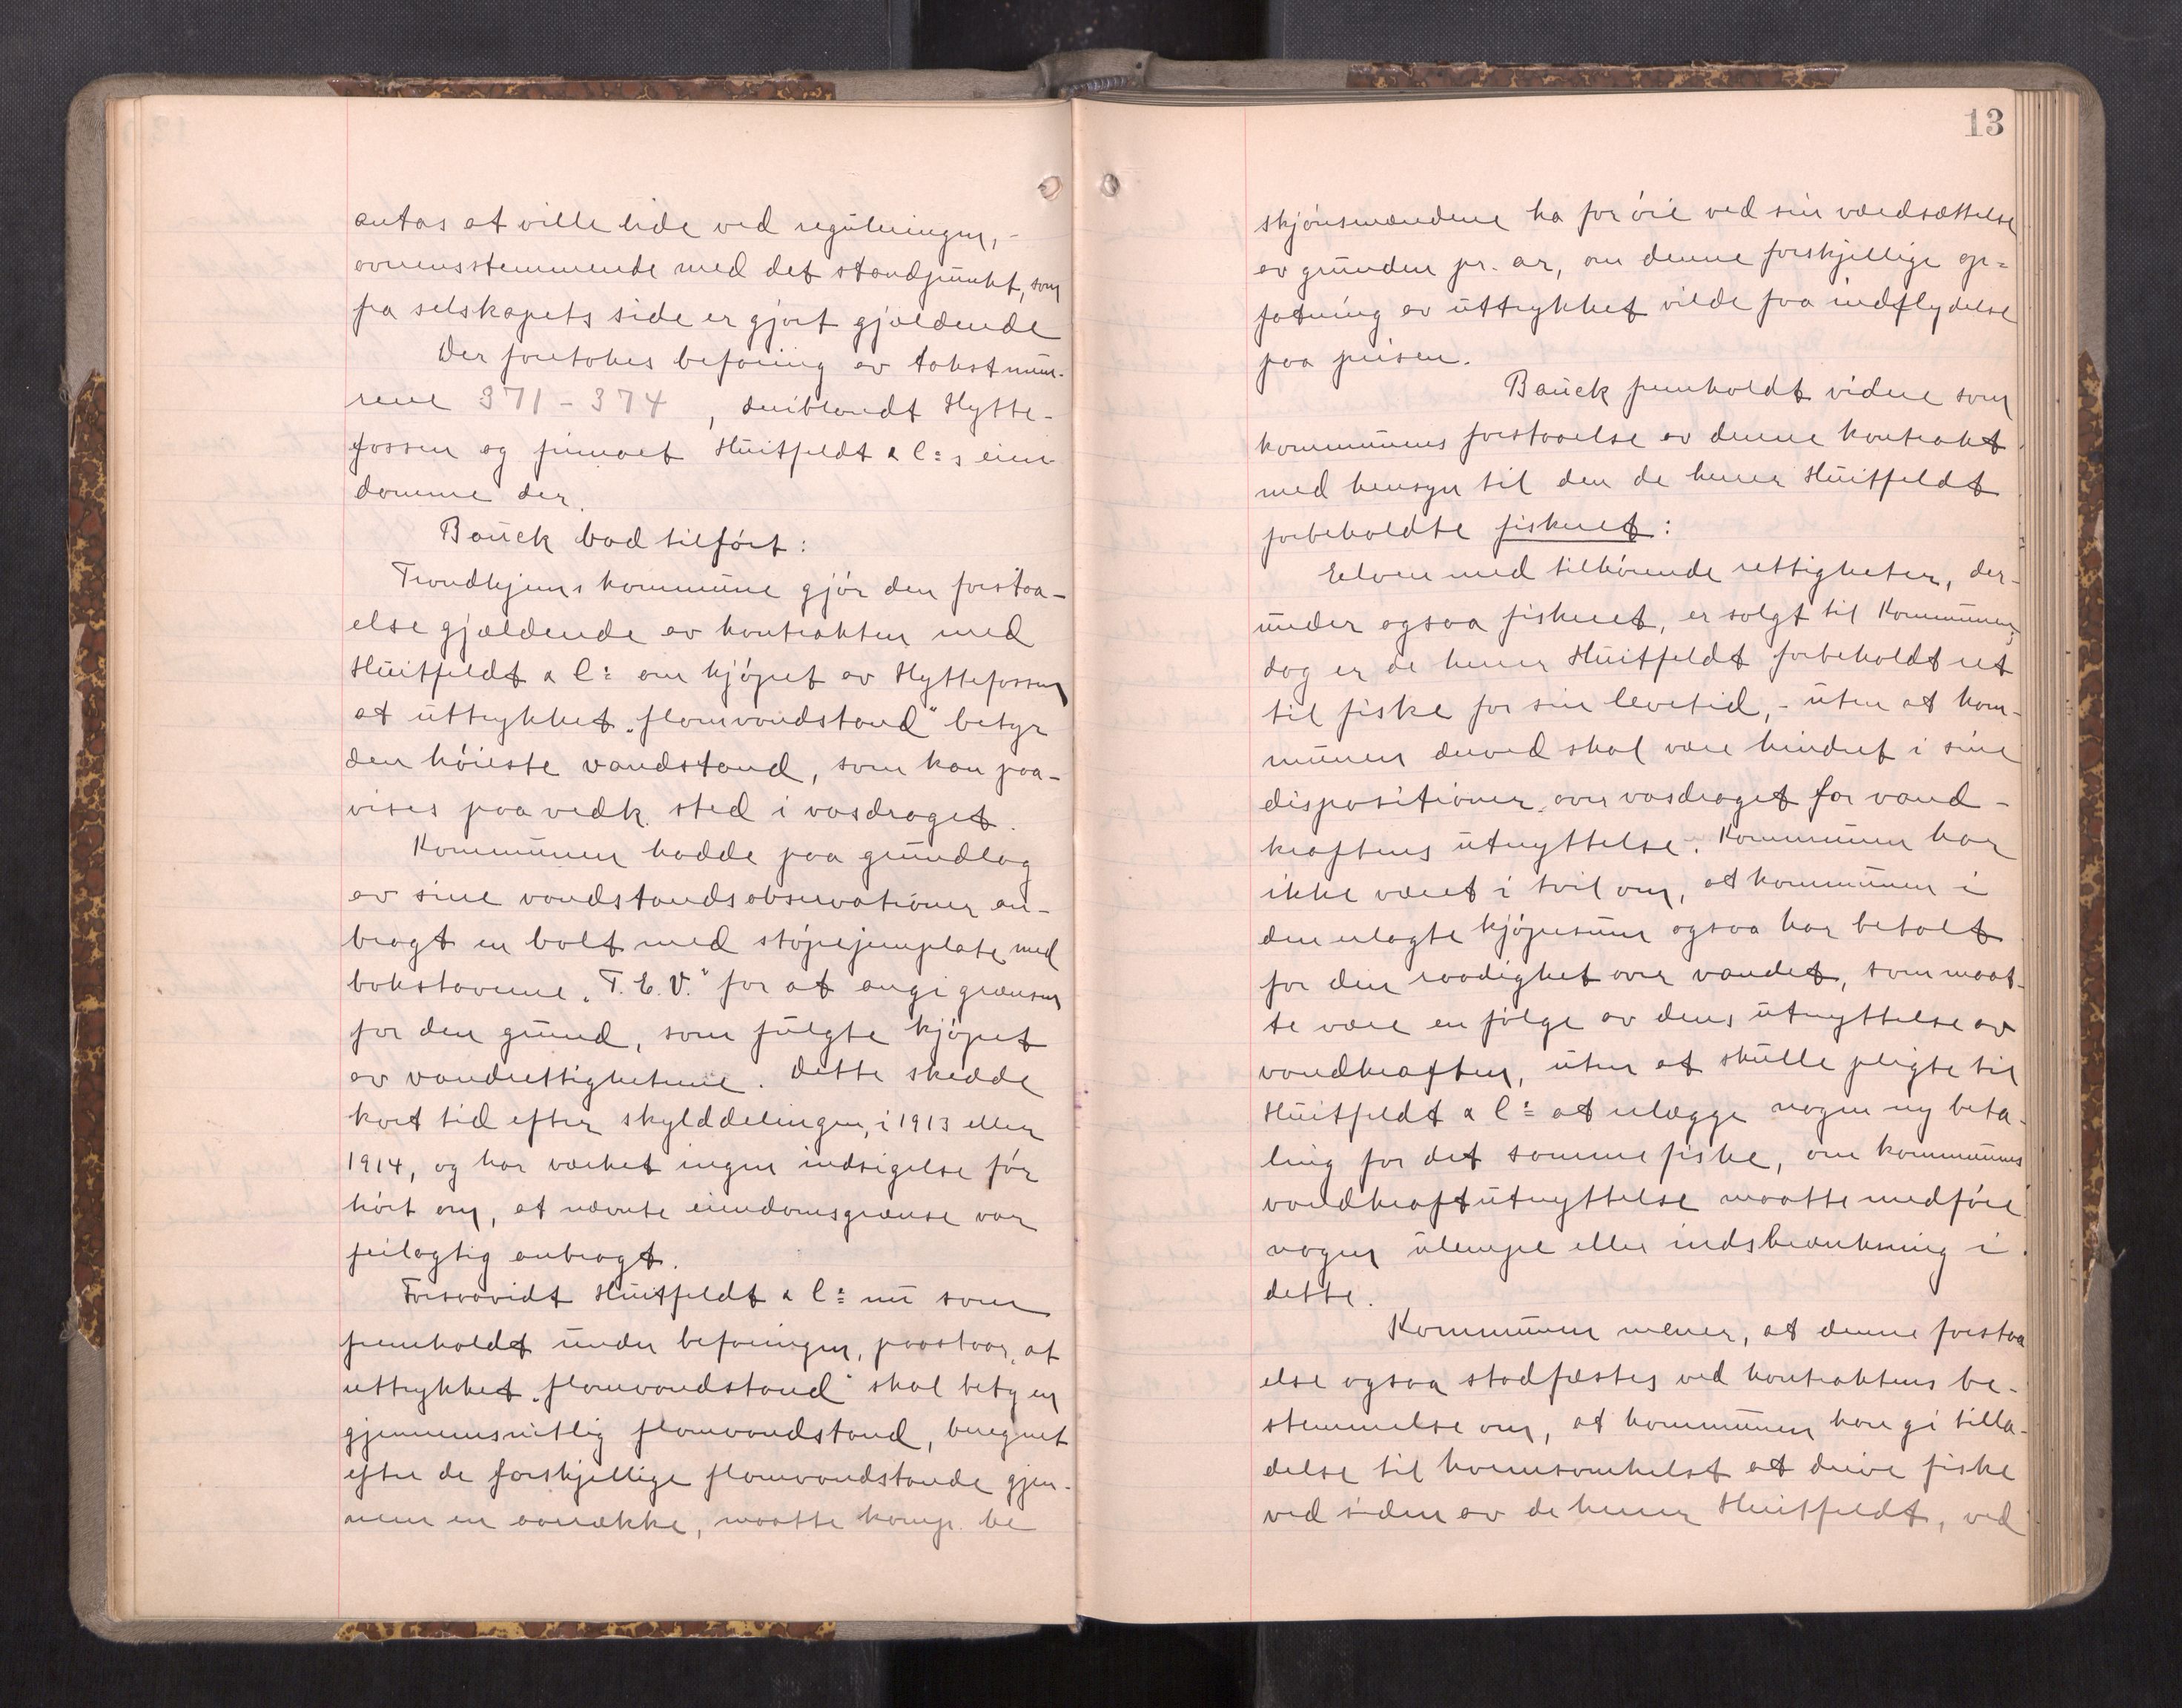 antas at ville lide ved reguleringen, -
overensstemmende med det standpunkt, som
fra selskapets side er gjort gjældende
Der foretokes befaring av takstnum-
rene 371 - 374, deriblandt Hytte-
fossen og finnaet Huitfeldt & C:s eien-
domme der.
Bauck bad tilført:
Trondhjems kommune gjør den forstaa-
else gjældende av kontrakten med
Huitfeldt & C: om kjøpet av Hyttefossen
at uttrykket „flomvandstand" betyr
den høieste vandstand, som kan paa-
vises paa vedk. sted i vasdraget.
Kommunen hadde paa grundlag
av sine vandstandsobservationer an-
bragt en bolt med støpejernplate med
bokstaverne „T. E. V." for at angi grænsen
for den grund, som fulgte kjøpet
av vandrettigheterne. Dette skedde
kort tid efter skylddelingen, i 1913 eller
1914, og har værket ingen indsigelse før
hørt om, at nævnte eiendomsgrænse var
feilagtig anbragt.
Forsaavidt Huitfeldt & C: nu som
fremholdt under befaringen, paastaar, at
uttrykket „flomvandstand" skal bety en
gjennemsnitlig flomvandstand, beregnet
efter de forskjellige flomvandstande gjen-
nem en aarrække, maatte komp. be
13
skjønsmændene ha for øie ved sin værdsættelse
av grunden pr. ar, om denne forskjellige op=
fatning av uttrykket vilde faa indflydelse
paa prisen.
Bauck fremholdt videre som
kommunens forstaaelse av denne kontrakt
med hensyn til den de herrer Huitfeldt
forbeholdte fiskeret:
Elven med tilhørende rettigheter, der-
under ogsaa fiskeret, er solgt til Kommunen;
dog er de herrer Huitfeldt forbeholdt ret
til fiske for sin levetid, - uten at kom-
munen derved skal være hindret i sine
dispositioner over vasdraget for vand-
kraftens utnyttelse. Kommunen har
ikke været i tvil om, at kommunen i
den erlagte kjøpesum ogsaa har betalt
for den raadighet over vandet, som maat-
te være en følge av dens utnyttelse av
vandkraften, uten at skulle pligte til
Huitfeldt & C: at erlægge nogen ny beta-
ling for det samme fiske, om kommunens
vandkraftutnyttelse maatte medføre
nogen ulempe eller indskrænkning i
dette.
Kommunen mener, at denne forstaa
else ogsaa stadfæstes ved kontraktens be-
stemmelse om, at kommunen kan gi tilla-
delse til hvemsomhelst at drive fiske
ved siden av de herrer Huitfeldt, ved